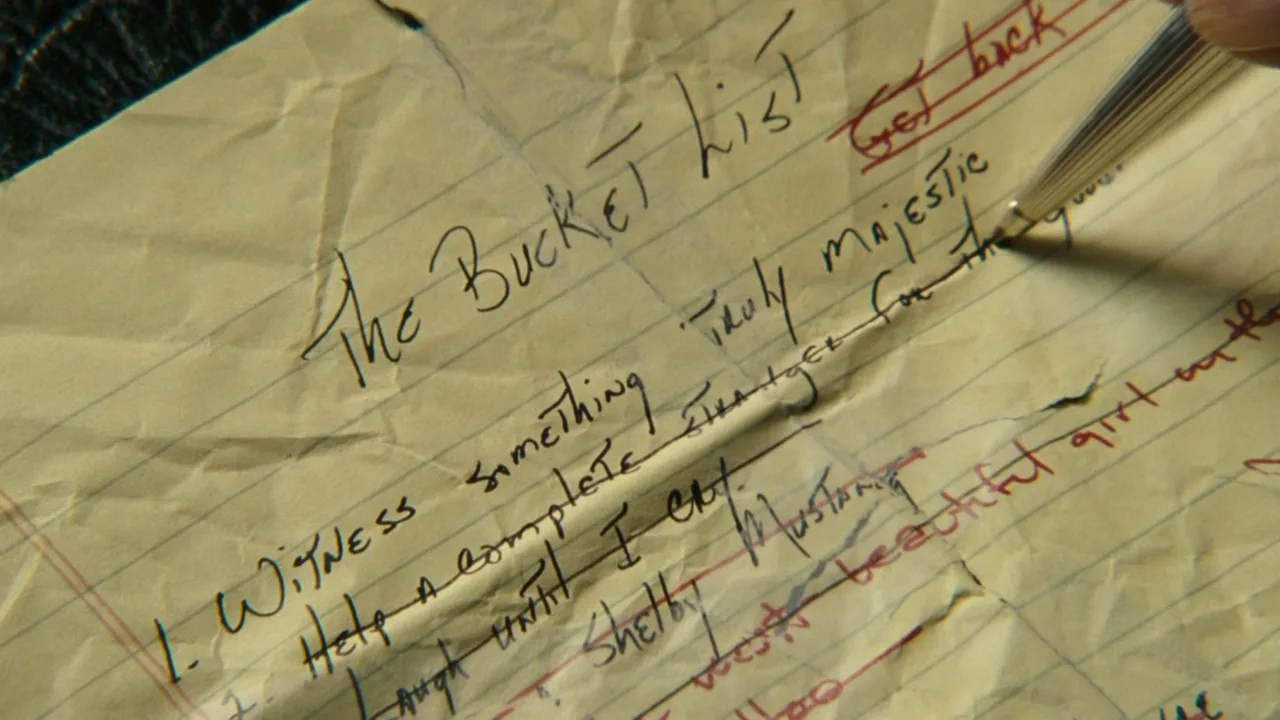 The Bucket List
Get back
1. Witness something Truly majestic
2. Help a complete stranger for the good.
Laugh until I cry.
Shelby Mustang
most beautiful girl in the